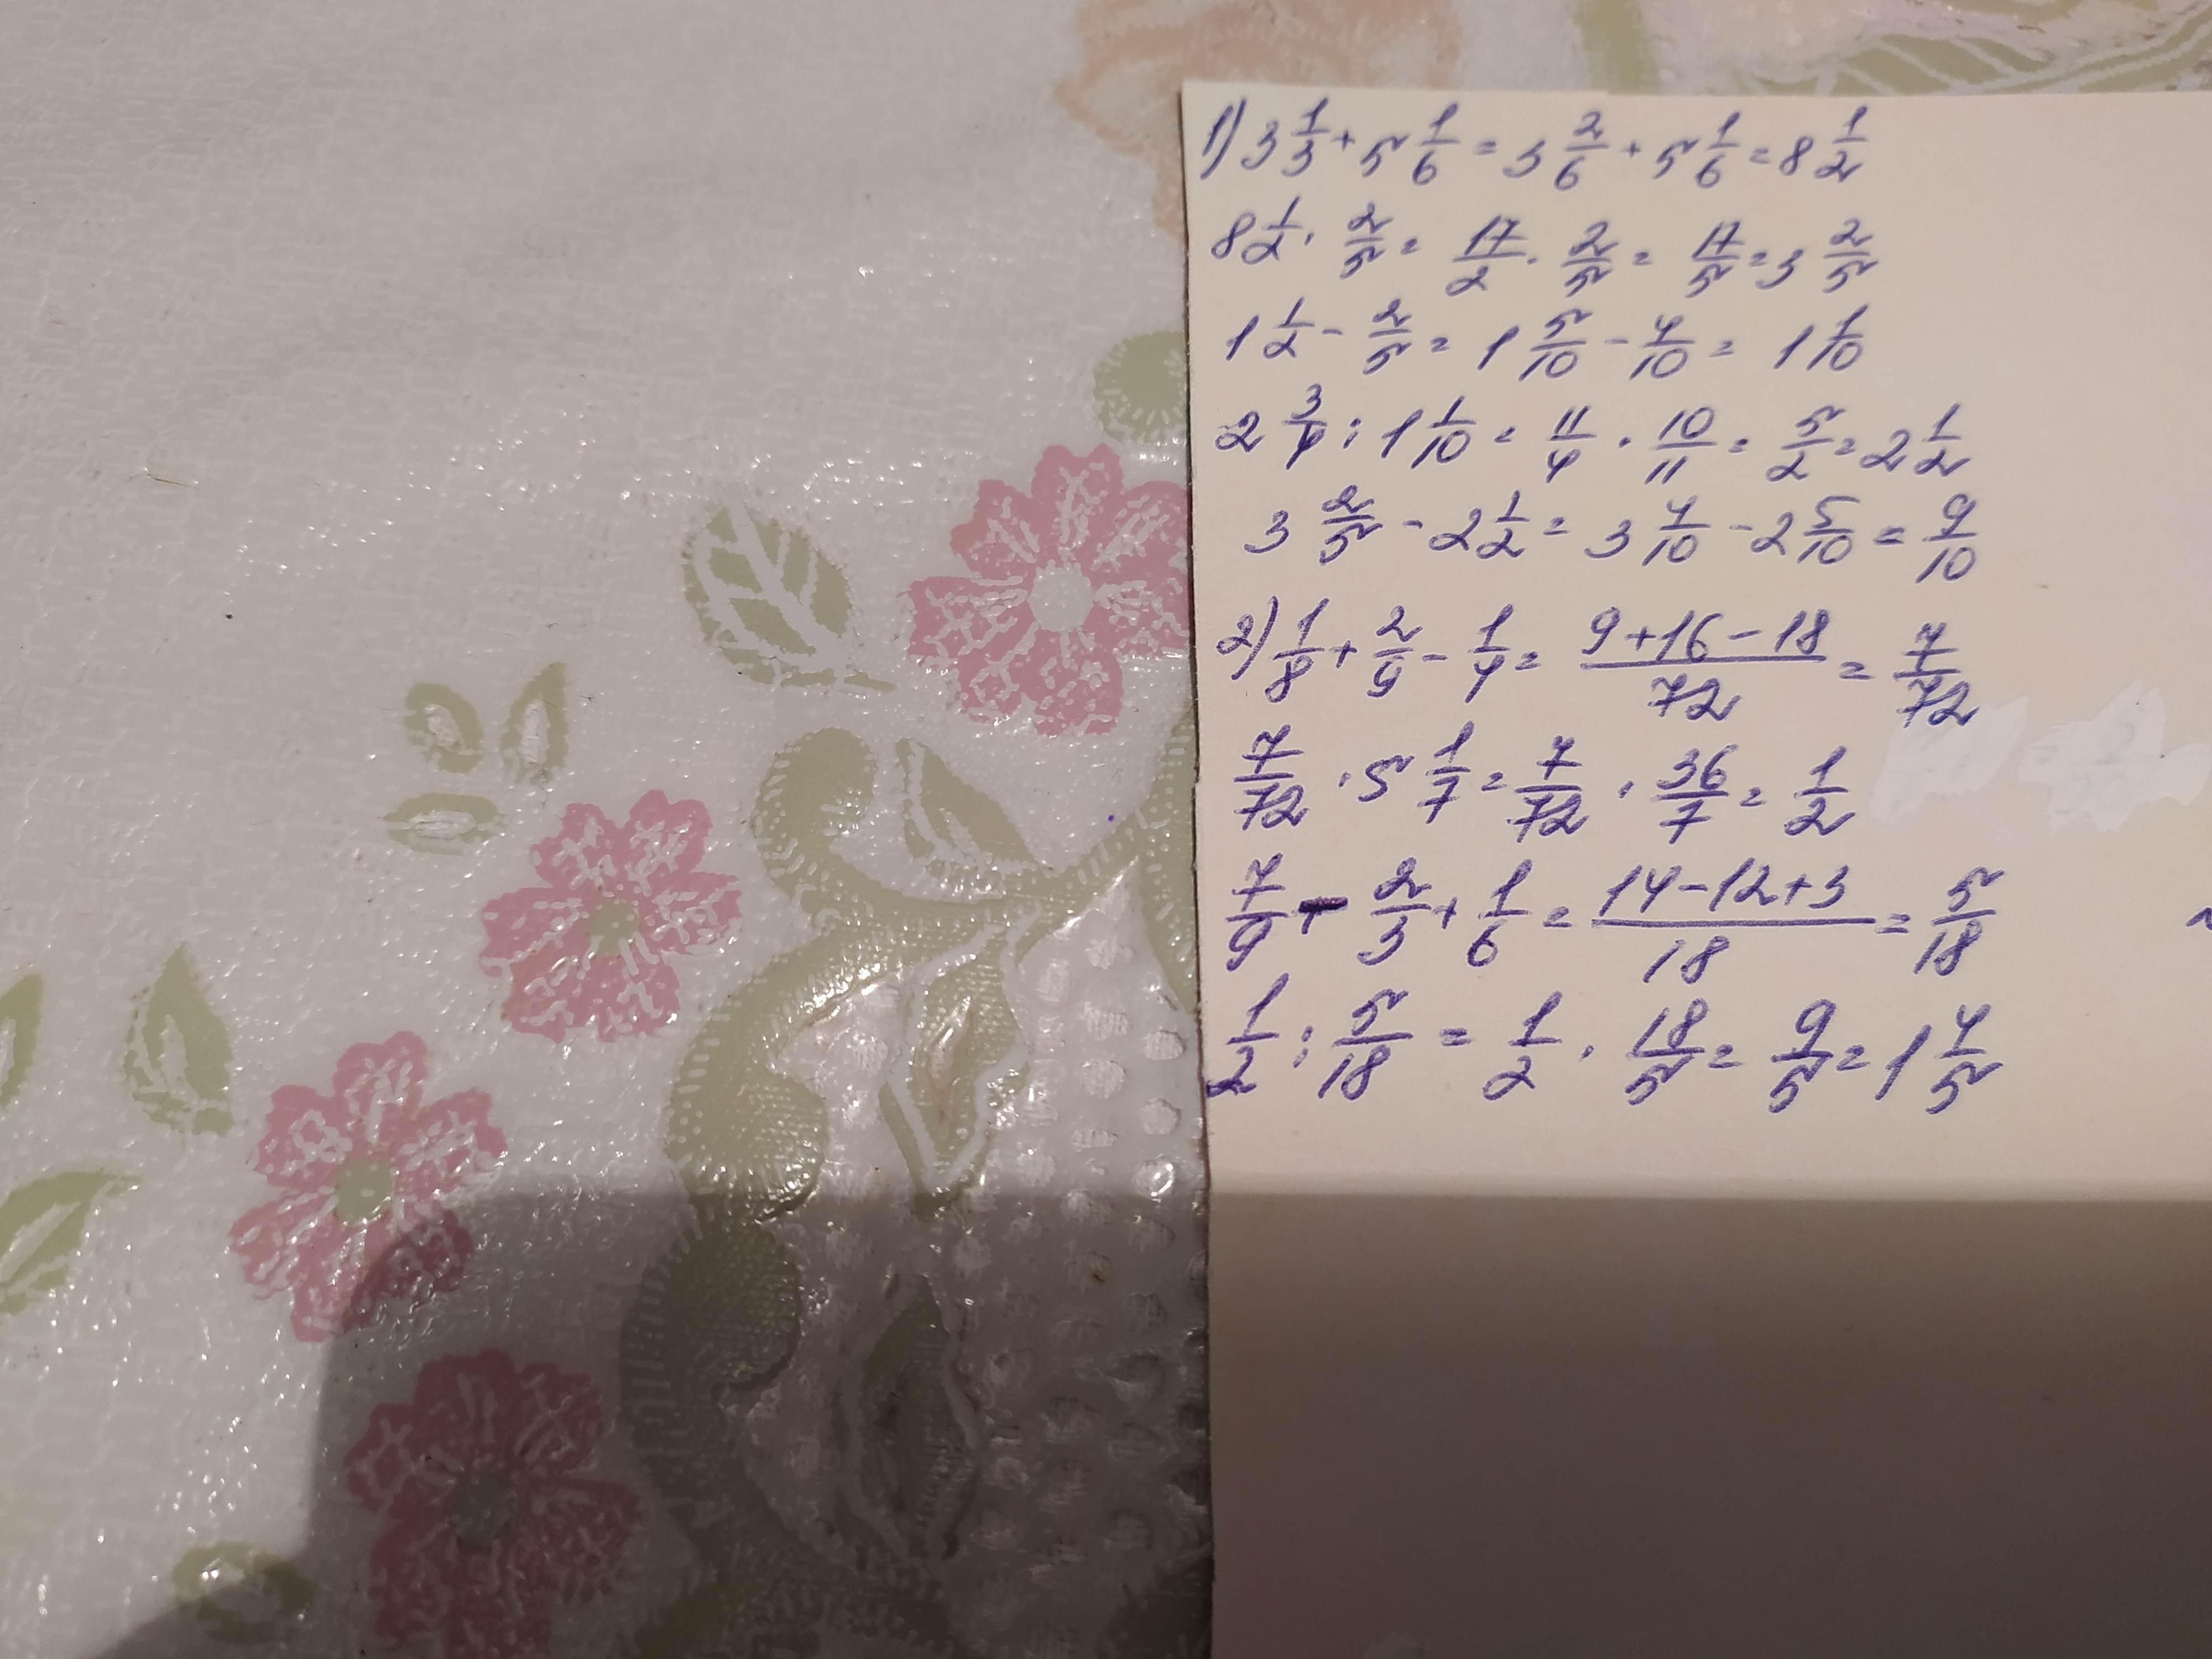 1) 3 1/3 + 5 1/6 = 3 2/6 + 5 1/6 = 8 1/2
8 1/2 · 2/5 = 17/2 · 2/5 = 17/5 = 3 2/5
1 1/2 - 2/5 = 1 5/10 - 4/10 = 1 1/10
2 3/4 : 1 1/10 = 11/4 · 10/11 = 5/2 = 2 1/2
3 2/5 - 2 1/2 = 3 4/10 - 2 5/10 = 9/10
2) 1/8 + 2/9 - 1/4 = (9+16-18)/72 = 7/72
7/72 · 5 1/7 = 7/72 · 36/7 = 1/2
7/9 - 2/3 + 1/6 = (14-12+3)/18 = 5/18
1/2 : 5/18 = 1/2 · 18/5 = 9/5 = 1 4/5